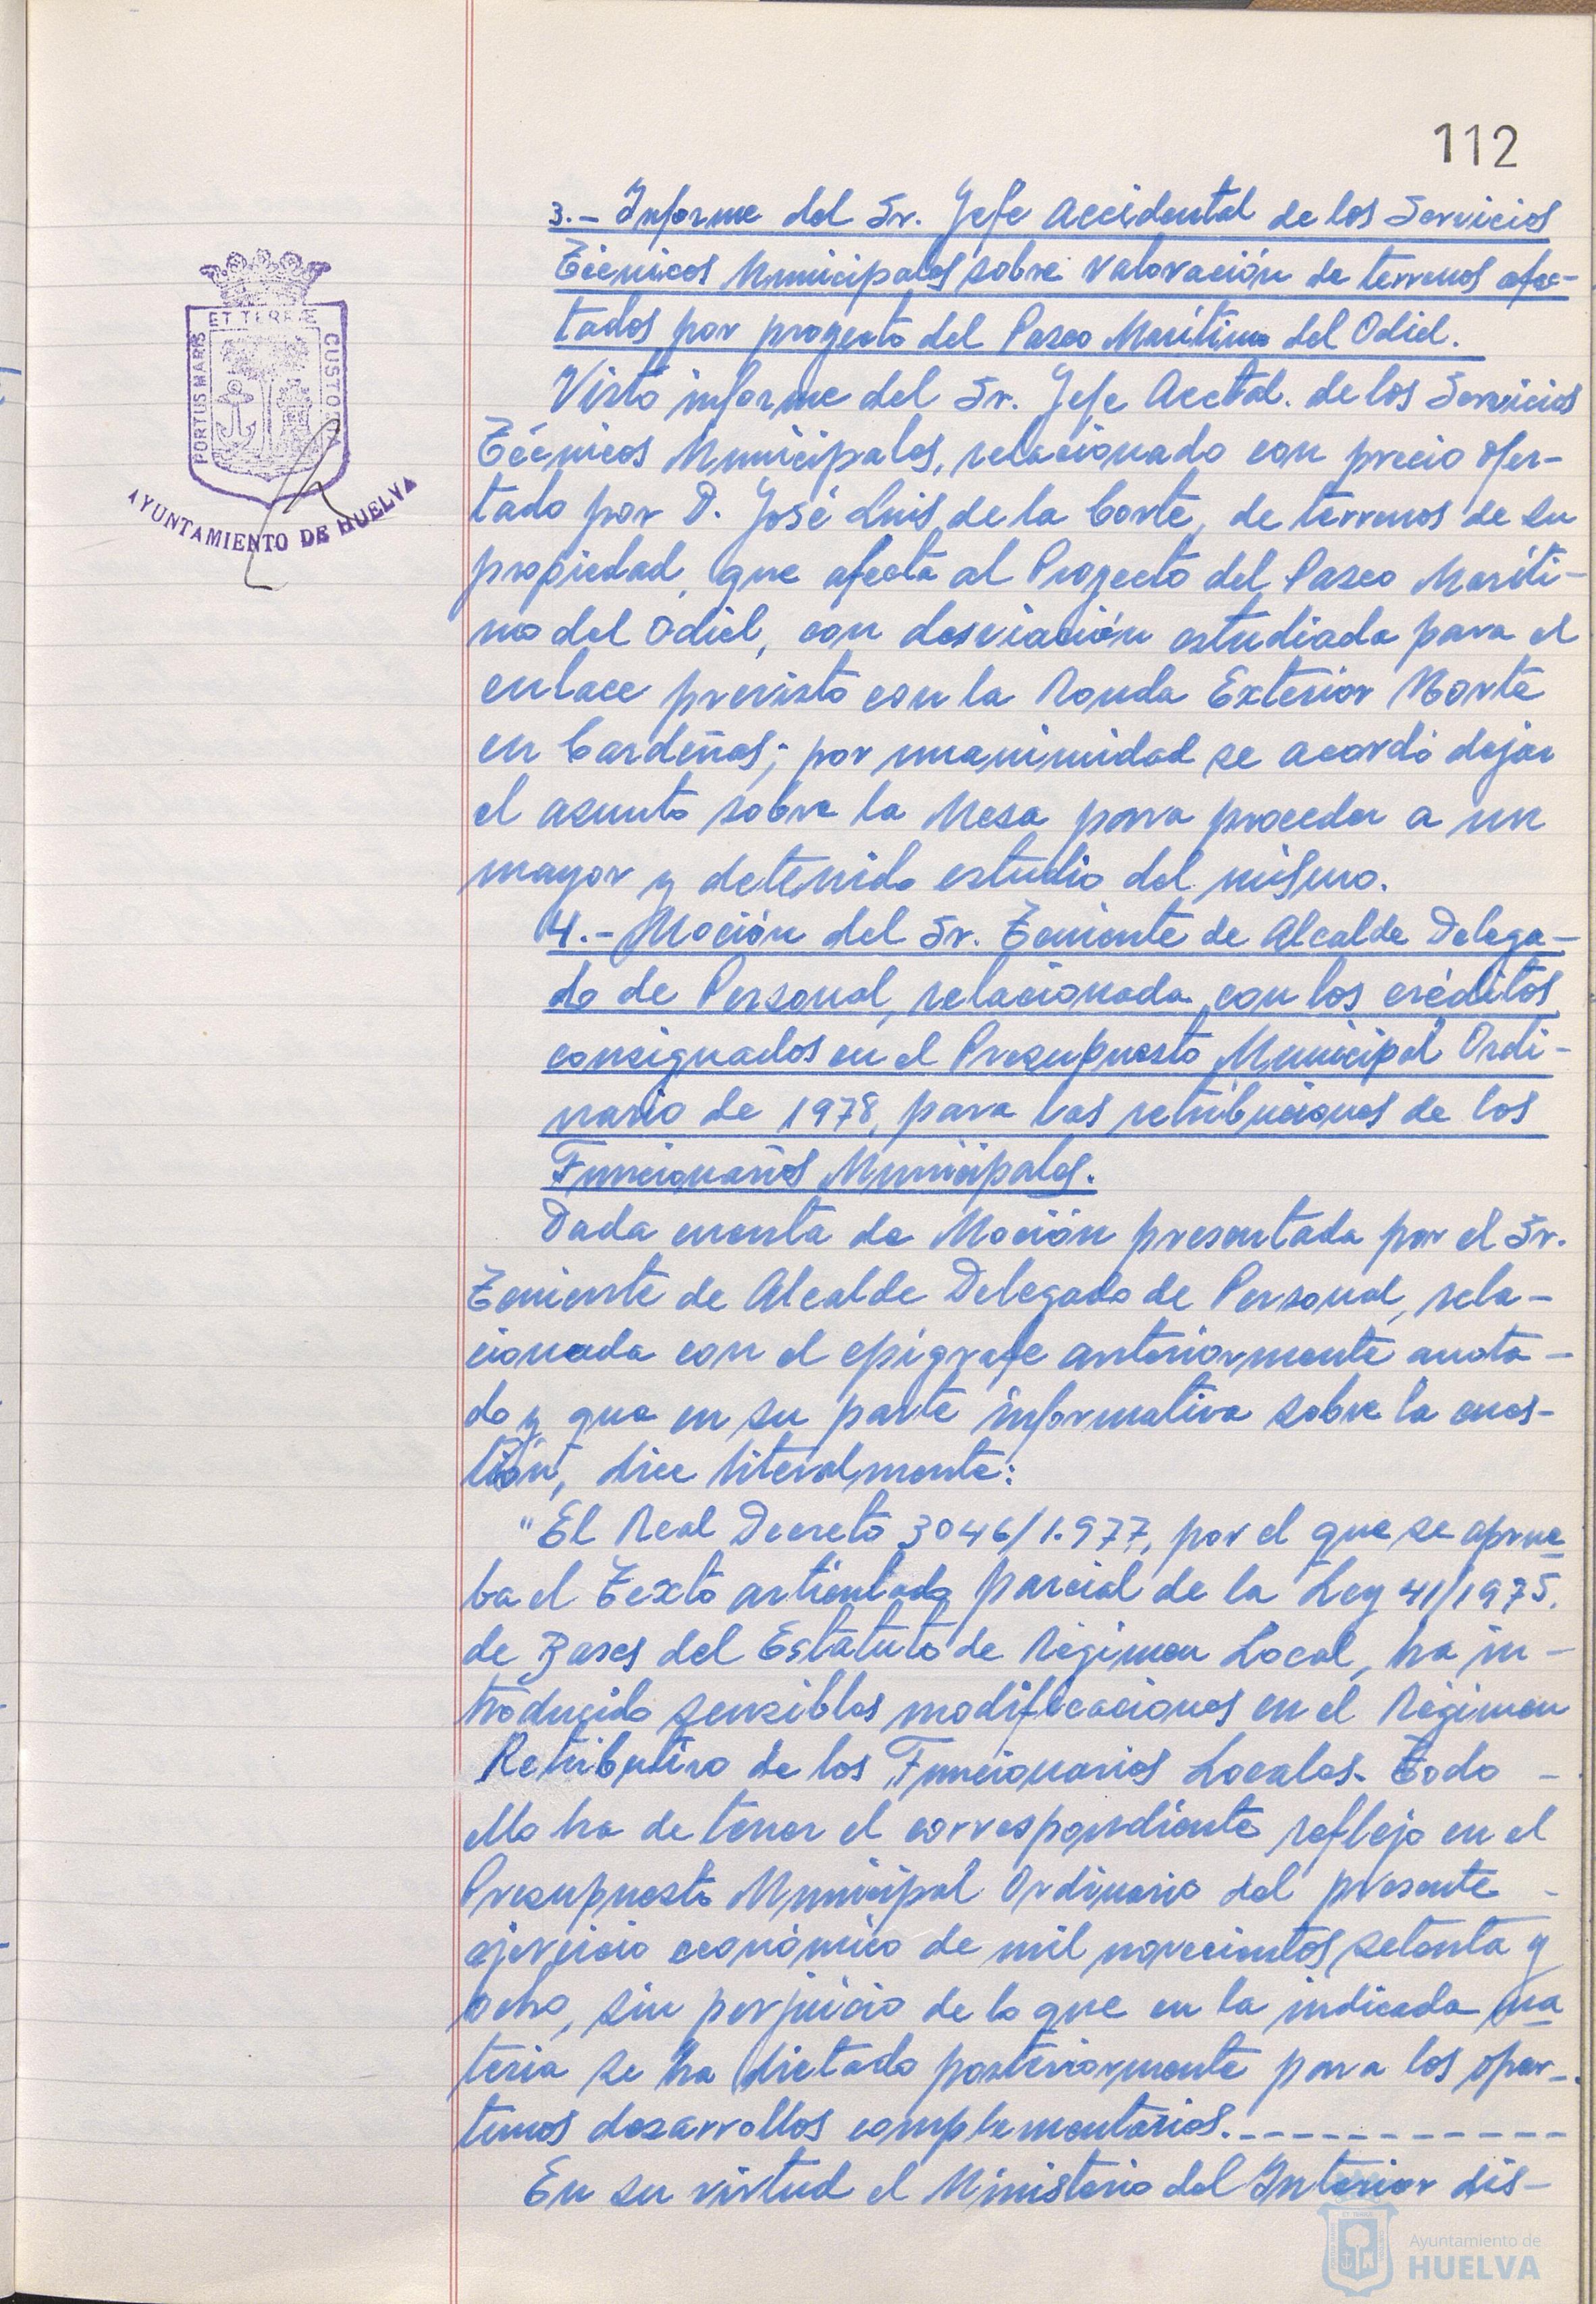 112
3.- Informe del Sr. Jefe Accidental de los Servicios
Técnicos Municipales sobre valoración de terrenos afec-
tados por proyecto del Paseo Marítimo del Odiel.
Visto informe del Sr. Jefe Acctal. de los Servicios
Técnicos Municipales, relacionado con precio ofer-
tado por D. José Luis de la Corte, de terrenos de su
propiedad, que afecta al Proyecto del Paseo Maríti-
mo del Odiel, con desviación estudiada para el
enlace previsto con la Ronda Exterior Norte
en Cardeñas; por unanimidad se acordó dejar
el asunto sobre la Mesa para proceder a un
mayor y detenido estudio del mismo.
4.- Moción del Sr. Teniente de Alcalde Delega-
do de Personal, relacionada con los créditos
consignados en el Presupuesto Municipal Ordi-
nario de 1978, para las retribuciones de los
Funcionarios Municipales.
Dada cuenta de Moción presentada por el Sr.
Teniente de Alcalde Delegado de Personal, rela-
cionada con el epígrafe anteriormente anota-
do y que en su parte informativa sobre la cues-
tión, dice literalmente:
"El Real Decreto 3046/1.977, por el que se aprue
ba el Texto articulado parcial de la Ley 41/1975.
de Bases del Estatuto de Régimen Local, ha in-
troducido sensibles modificaciones en el Régimen
Retributivo de los Funcionarios Locales. Todo -
ello ha de tener el correspondiente reflejo en el
Presupuesto Municipal Ordinario del presente -
ejercicio económico de mil novecientos setenta y
ocho, sin perjuicio de lo que en la indicada ma
teria se ha dictado posteriormente para los opor-
tunos desarrollos complementarios.-----------
En su virtud el Ministerio del Interior dis-
PORTUS MARIS
ET TERRÆ
CUSTODIA
AYUNTAMIENTO DE HUELVA
Ayuntamiento de
HUELVA